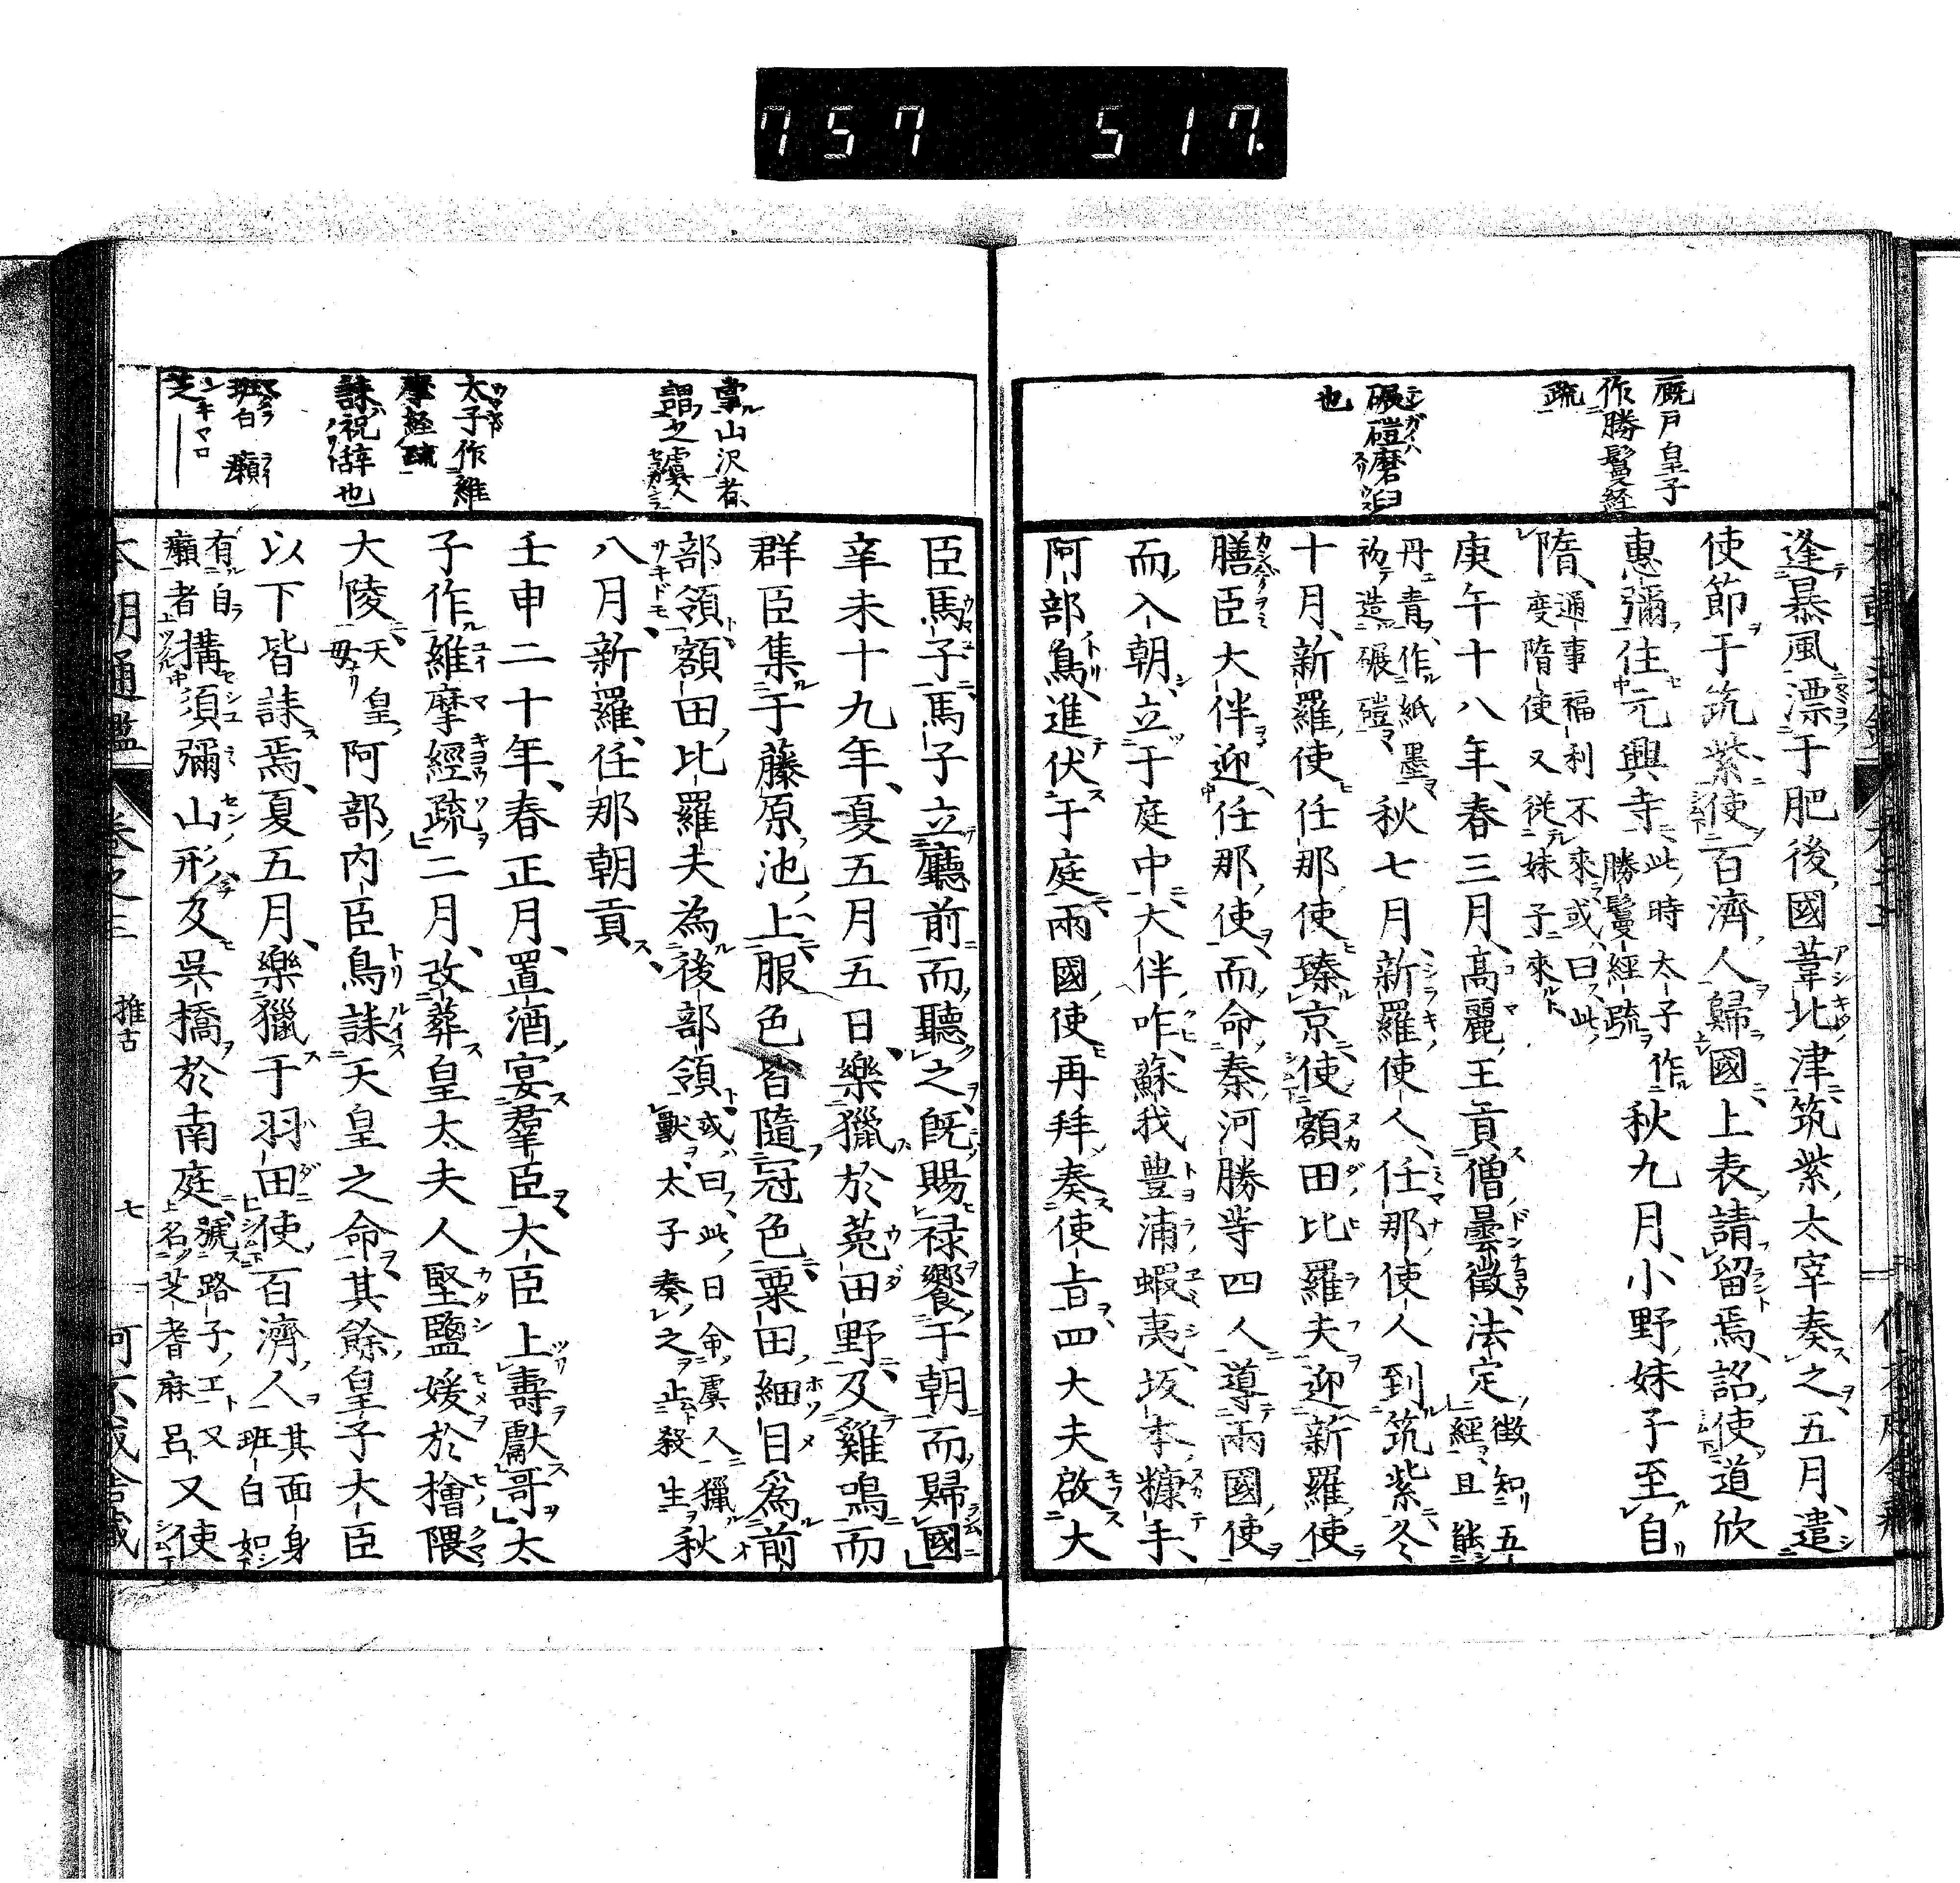 757 517.
廐戸皇子
作勝鬘経
疏
碾磑磨臼
也
逢暴風漂于肥後國葦北津筑紫太宰奏之五月遣
使節于筑紫使百濟人歸國上表請留焉詔使道欣
惠彌住元興寺此時太子作勝鬘經疏秋九月小野妹子至自
隋通事福利不來或曰此度隋使又從妹子來
庚午十八年春三月高麗王貢僧曇徵法定徵知五經且能
丹青作紙墨初造碾磑秋七月新羅使人任那使人到筑紫冬
十月新羅使任那使臻京使額田比羅夫迎新羅使
膳臣大伴迎任那使而命秦河勝等四人導兩國使
而入朝立于庭中大伴咋蘇我豊浦蝦夷坂本糠手
阿部鳥進伏于庭兩國使再拜奏使旨四大夫啟大
掌山沢者
謂之虞人
太子作維
摩経疏
誄祝辞也
班白 癩
芝
臣馬子馬子立廳前而聽之既賜禄饗于朝而歸國
辛未十九年夏五月五日樂獵於菟田野及雞鳴而
群臣集于藤原池上服色皆隨冠色粟田細目爲前
部領額田比羅夫為後部領或曰此日命虞人獵獸太子奏之止殺生秋
八月新羅任那朝貢
壬申二十年春正月置酒宴羣臣大臣上壽獻哥太
子作維摩經疏二月改葬皇太夫人堅鹽媛於檜隈
大陵天皇母阿部內臣鳥誄天皇之命其餘皇子大臣
以下皆誄焉夏五月樂獵于羽田使百濟人其面身班白如
有癩者自搆須彌山形及吳橋於南庭號路子工又名芝耆麻呂又使
本朝通鑑 卷之三 推古 七